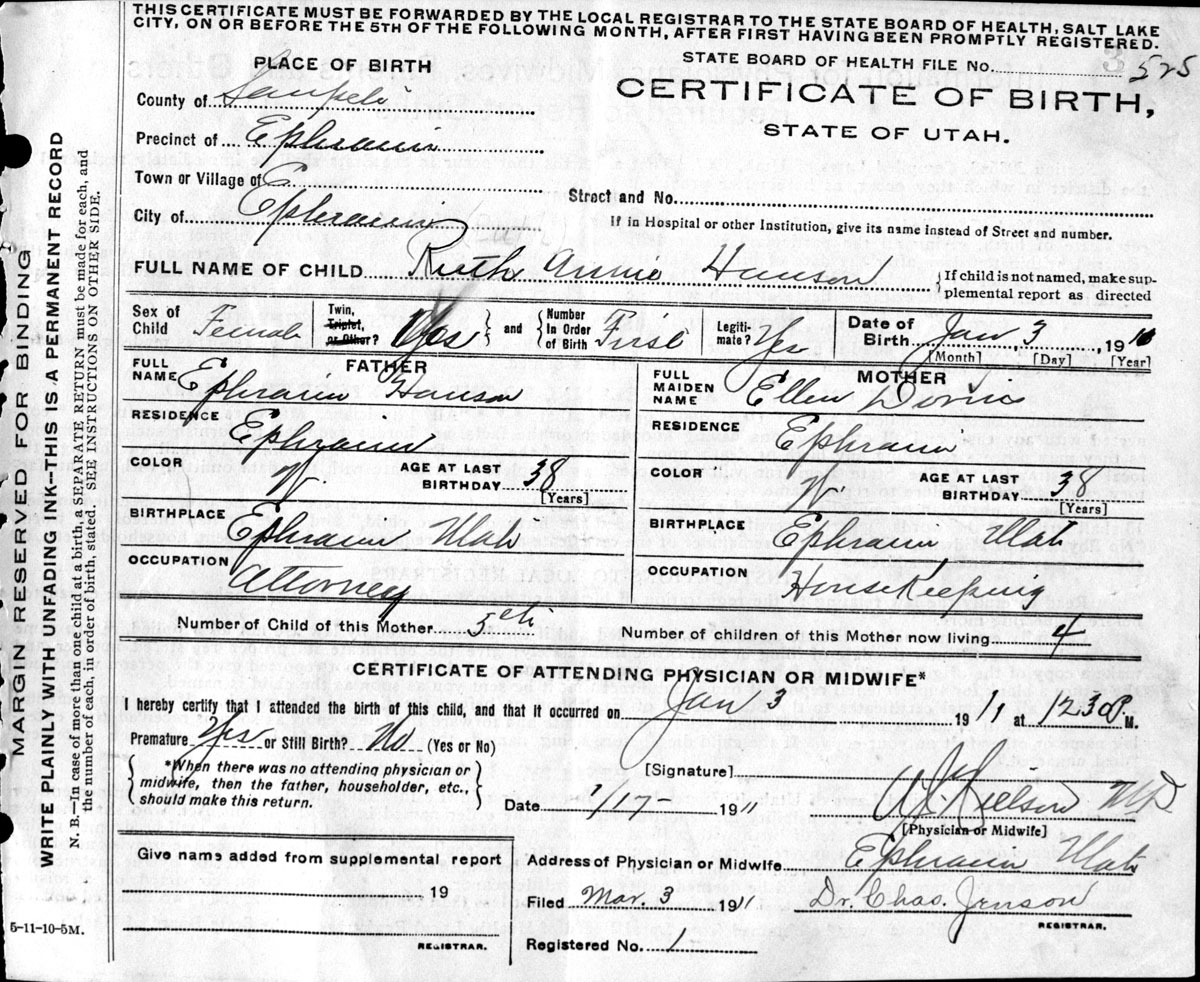 THIS CERTIFICATE MUST BE FORWARDED BY THE LOCAL REGISTRAR TO THE STATE BOARD OF HEALTH, SALT LAKE
CITY, ON OR BEFORE THE 5TH OF THE FOLLOWING MONTH, AFTER FIRST HAVING BEEN PROMPTLY REGISTERED.
PLACE OF BIRTH
STATE BOARD OF HEALTH FILE No. 525
County of Sanpete
CERTIFICATE OF BIRTH,
STATE OF UTAH.
Precinct of Ephraim
Town or Village of E
Street and No.
City of Ephraim
If in Hospital or other Institution, give its name instead of Street and number.
FULL NAME OF CHILD Ruth Annie Hanson {If child is not named, make sup-
plemental report as directed
Sex of Child Female
Twin, Triplet, or Other? Yes } and { Number In Order of Birth First
Legiti-mate? Yes
Date of Birth Jan 3, 19
[Month] [Day] [Year]
FATHER
FULL NAME Ephraim Hanson
RESIDENCE Ephraim
COLOR W. AGE AT LAST BIRTHDAY 38
[Years]
BIRTHPLACE Ephraim Utah
OCCUPATION Attorney
MOTHER
FULL MAIDEN NAME Ellen
RESIDENCE Ephraim
COLOR W. AGE AT LAST BIRTHDAY 38
[Years]
BIRTHPLACE Ephraim Utah
OCCUPATION Housekeeping
Number of Child of this Mother 5th
Number of children of this Mother now living 4
CERTIFICATE OF ATTENDING PHYSICIAN OR MIDWIFE*
I hereby certify that I attended the birth of this child, and that it occurred on Jan 3 1911 at 1230 P. M.
Premature Yes or Still Birth? No (Yes or No)
{ *When there was no attending physician or
midwife, then the father, householder, etc.,
should make this return. }
[Signature] Nielson MD
[Physician or Midwife]
Date 1/17- 1911
Give name added from supplemental report
19
REGISTRAR.
Address of Physician or Midwife Ephraim Utah
Filed Mar. 3 1911 Dr. Chas. Jenson
REGISTRAR.
Registered No. 1
5-11-10-5M.
MARGIN RESERVED FOR BINDING
WRITE PLAINLY WITH UNFADING INK--THIS IS A PERMANENT RECORD
N. B.—In case of more than one child at a birth, a SEPARATE RETURN must be made for each, and
the number of each, in order of birth, stated. SEE INSTRUCTIONS ON OTHER SIDE.